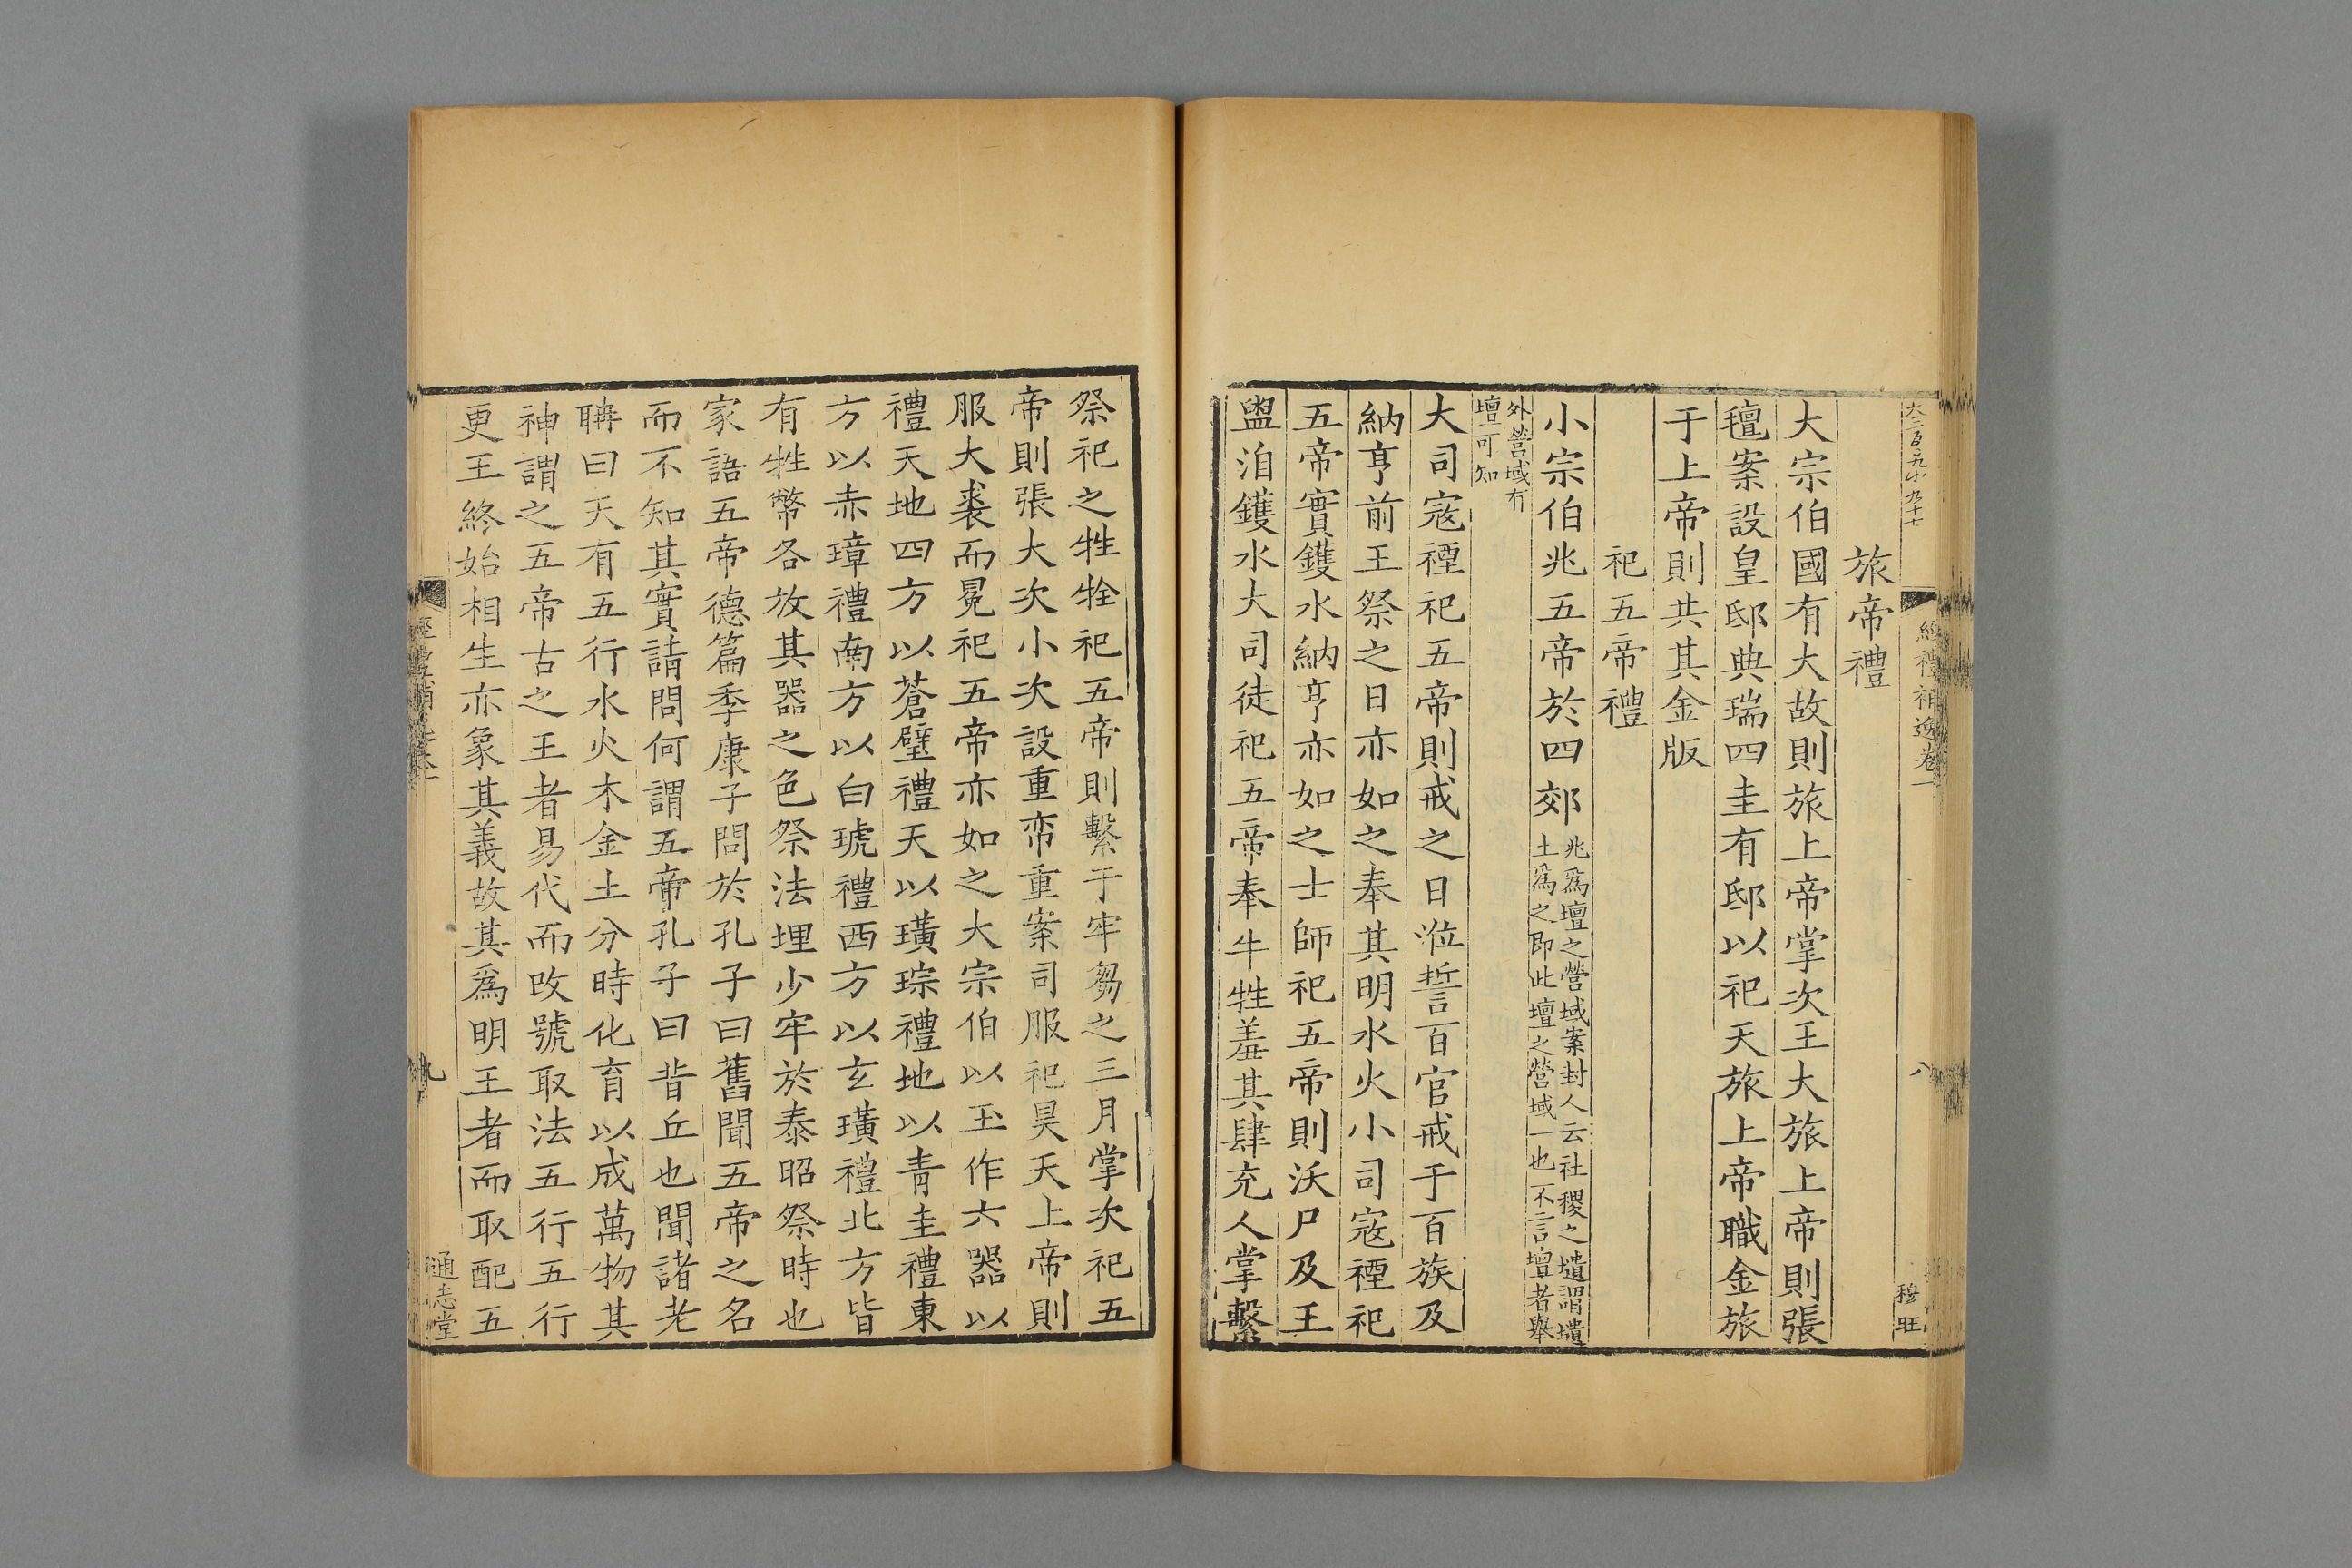 大三百九小九十七
經禮補逸卷一
八
穆旺
旅帝禮
大宗伯國有大故則旅上帝掌次王大旅上帝則張
氊案設皇邸典瑞四圭有邸以祀天旅上帝職金旅
于上帝則共其金版
祀五帝禮
小宗伯兆五帝於四郊兆爲壇之營域案封人云社稷之壝謂壝
土爲之即此壇之營域一也不言壇者舉
外營域有
壇可知
大司寇禋祀五帝則戒之日涖誓百官戒于百族及
納亨前王祭之日亦如之奉其明水火小司寇禋祀
五帝實鑊水納亨亦如之士師祀五帝則沃尸及王
盥洎鑊水大司徒祀五帝奉牛牲羞其肆充人掌繫
祭祀之牲牷祀五帝則繫于牢芻之三月掌次祀五
帝則張大次小次設重帟重案司服祀昊天上帝則
服大裘而冕祀五帝亦如之大宗伯以玉作六器以
禮天地四方以蒼璧禮天以璜琮禮地以青圭禮東
方以赤璋禮南方以白琥禮西方以玄璜禮北方皆
有牲幣各放其器之色祭法埋少牢於泰昭祭時也
家語五帝德篇季康子問於孔子曰舊聞五帝之名
而不知其實請問何謂五帝孔子曰昔丘也聞諸老
聃曰天有五行水火木金土分時化育以成萬物其
神謂之五帝古之王者易代而改號取法五行五行
更王終始相生亦象其義故其爲明王者而取配五
九
通志堂